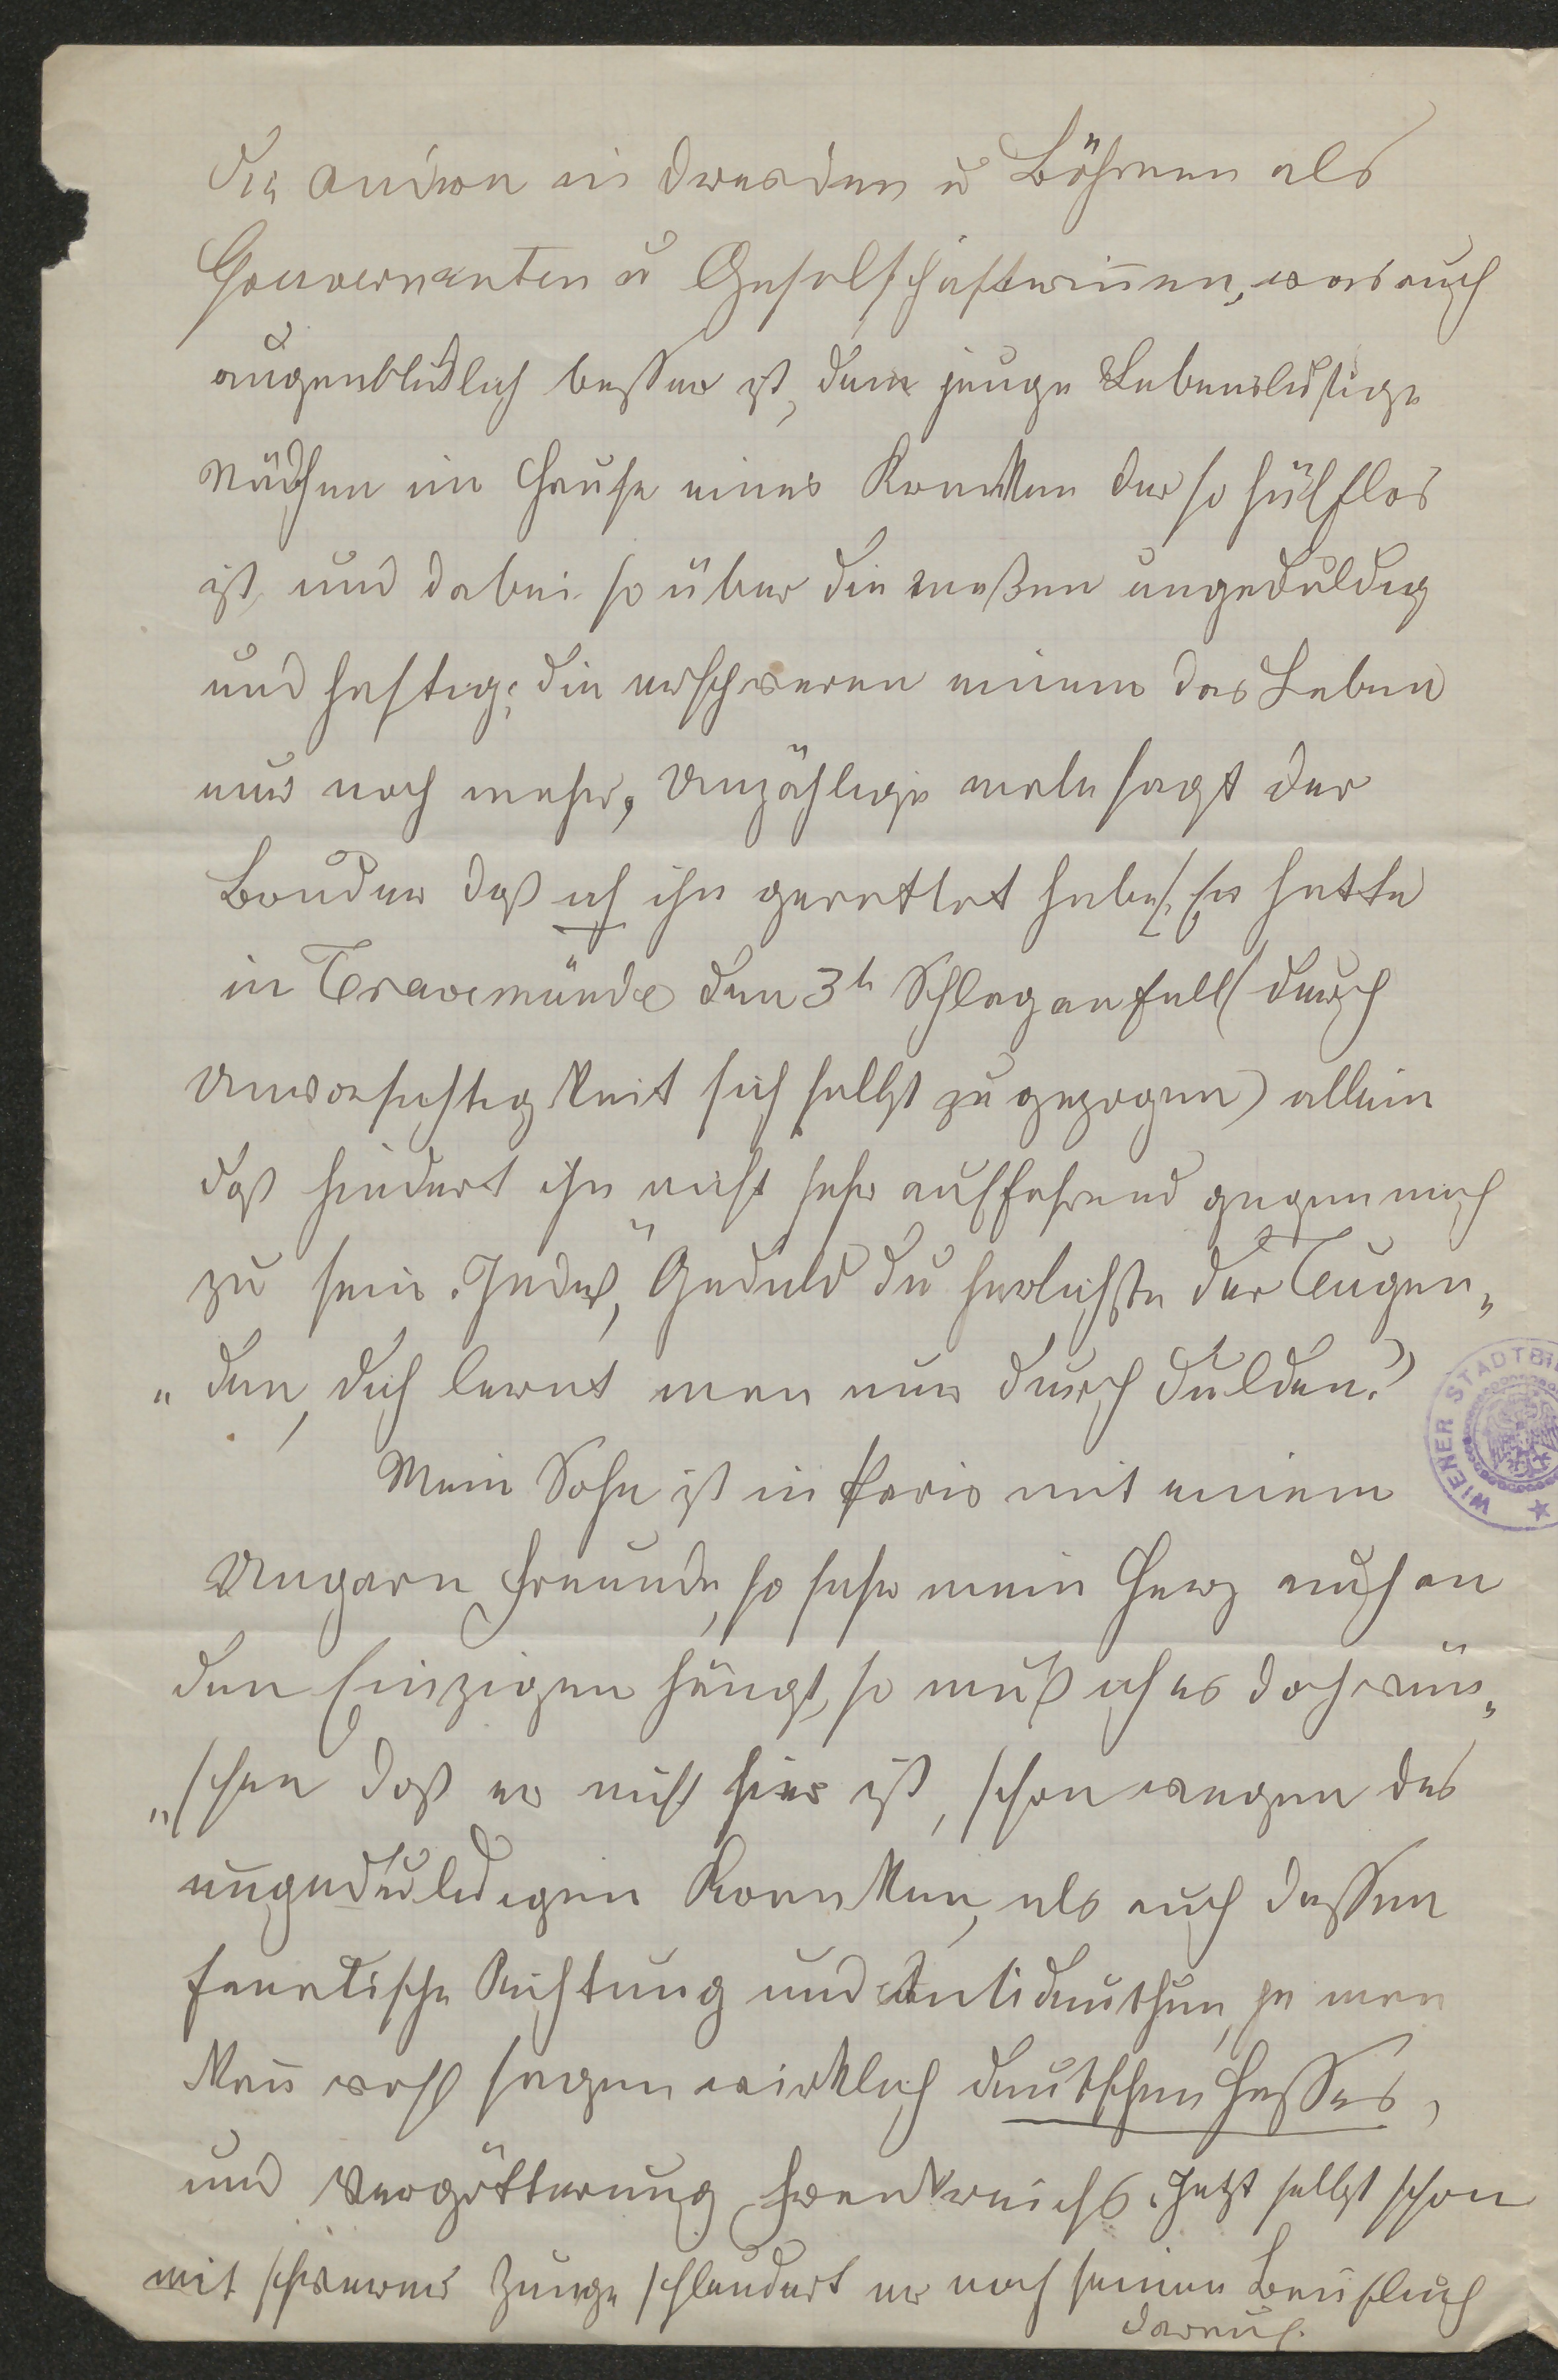 die andren in Dresden u Böhmen als
Gouvernanten u Geselschafterinnen, was auch
augenbliklich besser ist, denn junge Lebenslustige
Mädchen im Hause eines Kranken der so hülflos
ist, und dabei so über die maßen ungeduldig
und heftig, die erschweren einem das Leben
nur noch mehr, Unzählige male sagt der
Bruder daß ich ihn gerettet habe, Er hatte
in Travemünde den 3t Schlaganfall (durch
Unvorsichtigkeit sich selbst zu gezogen) allein
daß hindert ihn nicht sehr auffahrend gegen mich
zu sein. Indeß, "Geduld du herlichste der Tugen„
„den, dich lernt man nur durch dulden."
Mein Sohn ist in Paris mit einem
Ungarn Freunde, so sehr mein Herz auch an
den Einzigen hängt, so muß ich es doch wün„
„schen daß er nicht hier ist, schon wegen des
ungeduldigen Kranken, als auch dessen
fanatische Richtung und Antideutschen, ja man
kann wohl sagen wirklich deutschen Hasses,
und Vergötterung Frankreichs. Jetzt selbst schon
mit schwerer Zunge schleudert er noch seinen
darauf.
WIENER STADTBI